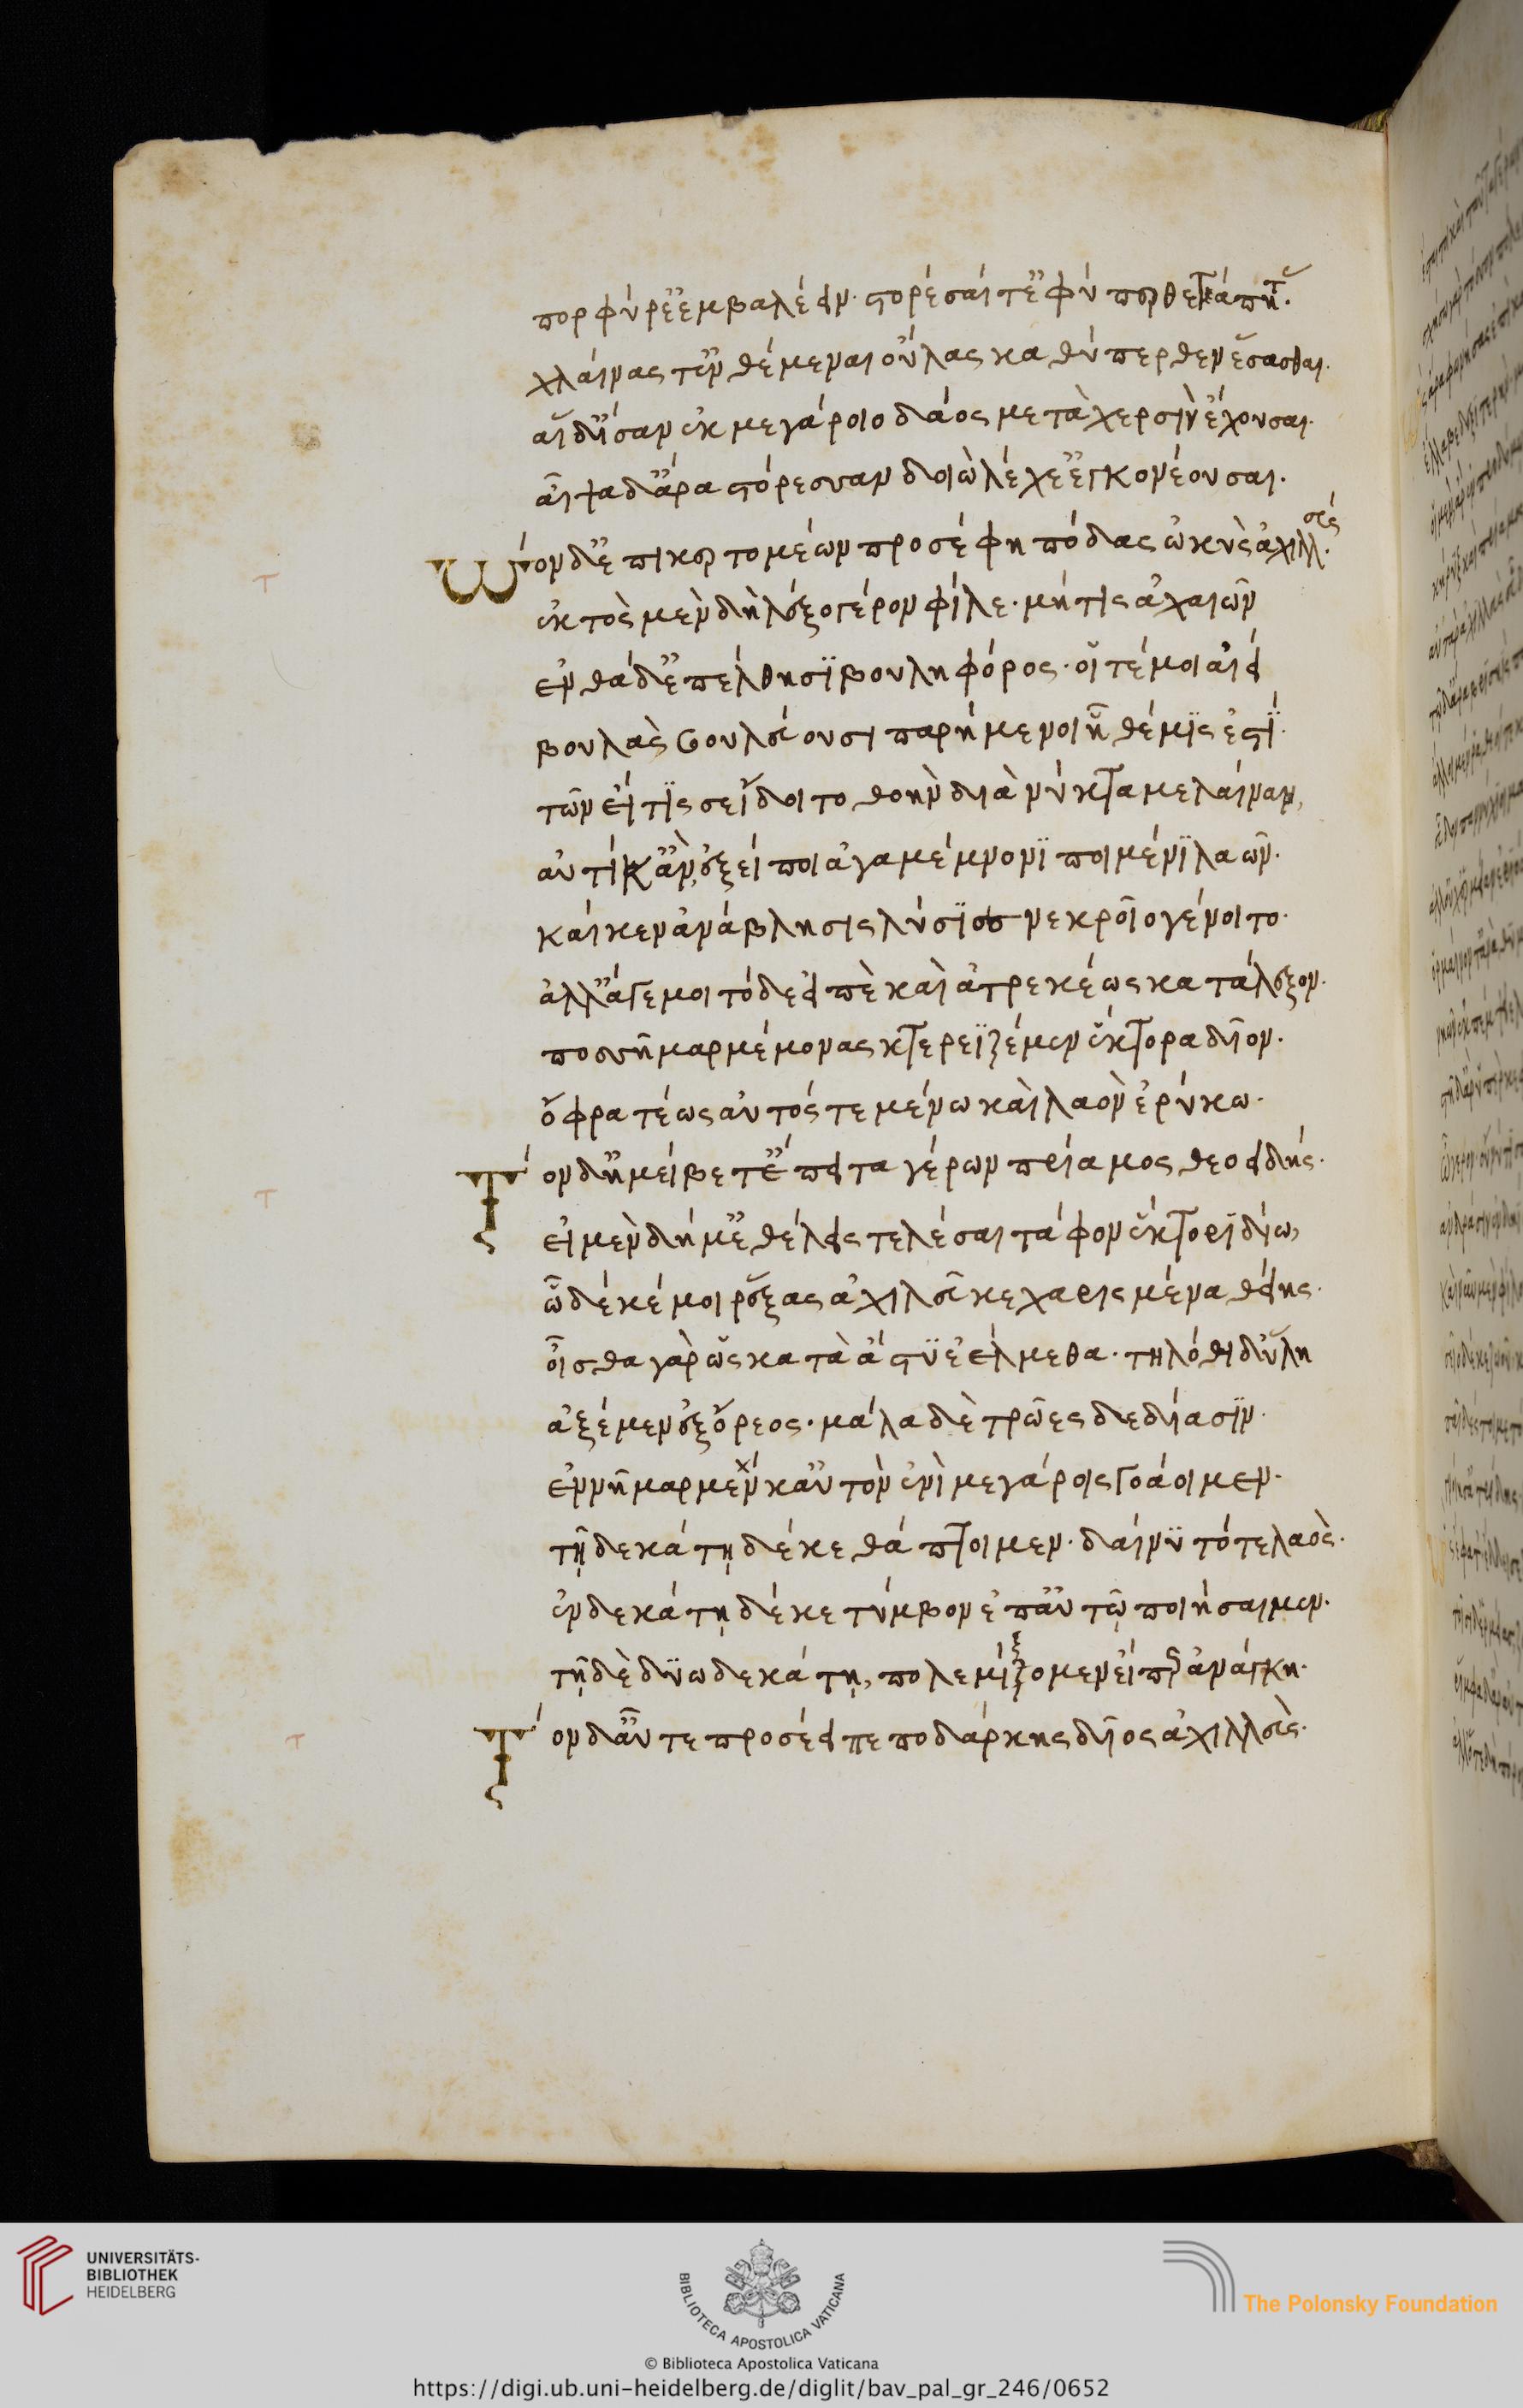 πορφύρε' ἐμβαλέειν· στορέσαι τ' ἐφύπερθε τάπητας·
χλαίνας τ' ἐνθέμεναι οὔλας καθύπερθεν ἔσασθαι·
αἱ δ' ἴσαν ἐκ μεγάροιο δάος μετὰ χερσὶν ἔχουσαι·
αἶψα δ' ἄρα στόρεσαν δοιὼ λέχε' ἐγκονέουσαι·
Τὸν δ' ἐπικερτομέων προσέφη πόδας ὠκὺς ἀχιλλεύς·
ἐκτὸς μὲν δὴ λέξο γέρον φίλε· μή τις ἀχαιῶν
ἐνθάδ' ἐπέλθησϊ βουληφόρος· οἵ τέ μοι αἰεὶ
βουλὰς βουλεύουσι παρήμενοι ἣ θέμϊς ἐστΐ·
τῶν εἴ τΐς σε ἴδοιτο θοὴν διὰ νύκτα μέλαιναν,
αὐτίκ' ἂν ἐξείποι ἀγαμέμνονϊ ποιμένϊ λαῶν·
καί κεν ἀνάβλησις λύσϊος νεκροῖο γένοιτο·
ἀλλ' ἄγε μοι τόδε εἰπὲ καὶ ἀτρεκέως κατάλεξον·
ποσσῆμαρ μέμονας κτερεϊζέμεν ἕκτορα δῖον·
ὄφρα τέως αὐτός τε μένω καὶ λαὸν ἐρύκω·
Τὸν δ' ἠμείβετ' ἔπειτα γέρων πρίαμος θεοειδής·
εἰ μὲν δή μ' ἐθέλεις τελέσαι τάφον ἕκτορϊ δίω,
ὧδέ κέ μοι ῥέζας ἀχιλεῦ κεχαρισμένα θείης·
οἶσθα γὰρ ὡς κατὰ ἄστϋ ἐέλμεθα· τηλόθι δ' ὕλη
ἀξέμεν ἐξ ὄρεος· μάλα δὲ τρῶες δεδίασϊν·
ἐννῆμαρ μέν κ' αὐτὸν ἐνὶ μεγάροις γοάοιμεν·
τῇ δεκάτῃ δέ κε θάπτοιμεν· δαίνϋτό τε λαὸς·
ἑνδεκάτῃ δέ κε τύμβον ἐπ' αὐτῷ ποιήσαιμεν·
τῇ δὲ δϋωδεκάτῃ, πολεμίζομεν εἴπερ ἀνάγκη·
Τὸν δ' αὖτε προσέειπε ποδάρκης δῖος ἀχιλλεὺς·
UNIVERSITÄTS-
BIBLIOTHEK
HEIDELBERG
BIBLIOTECA APOSTOLICA VATICANA
The Polonsky Foundation
© Biblioteca Apostolica Vaticana
https://digi.ub.uni-heidelberg.de/diglit/bav_pal_gr_246/0652